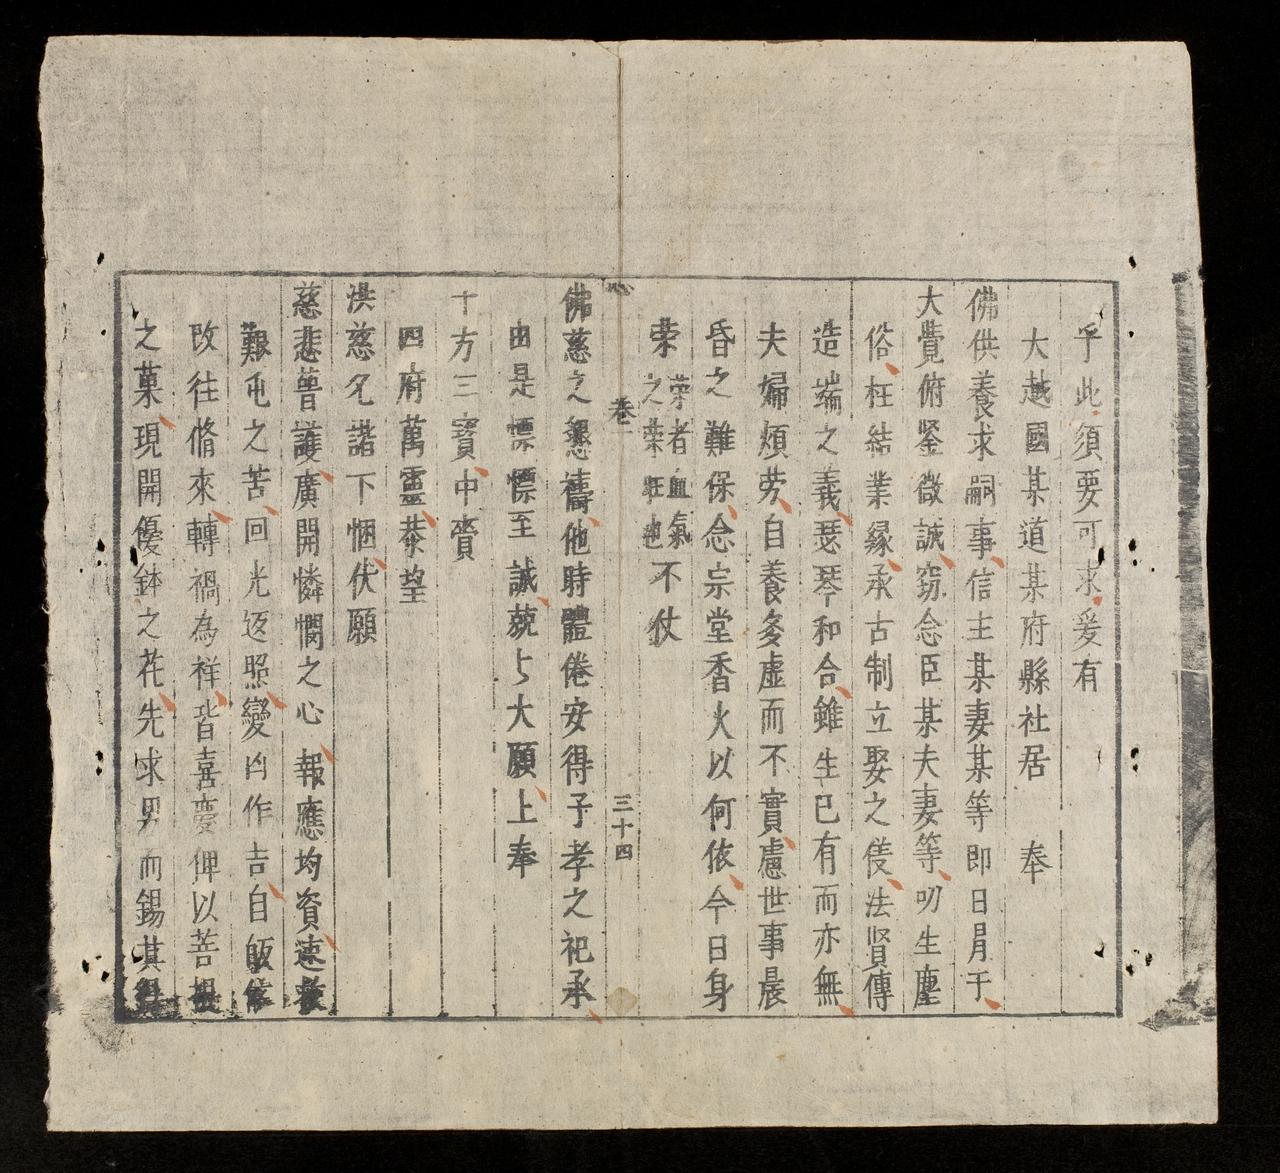 乎此須要可求爰有
大越國某道某府縣社居　奉
佛供養求嗣事信主某妻某等即日㬰于
大覺俯鉴微誠窃念臣某夫妻等叨生塵
俗枉結業縁承古制立娶之儀法賢傳
造端之義瑟琴和合雖生已有而亦無
夫婦煩劳自養多虚而不實慮世事晨
昏之難保念宗堂香火以何依今日身
荣荣者血氣之荣旺也不仗
卷一　三十四
佛慈之懇禱他時體倦安得子孝之祀承
由是慓慓至誠兢上大願上奉
十方三寶中賫
四府萬靈恭望
洪慈允諧下悃伏願
慈悲普護廣開憐憫之心報應均資速救
艱屯之苦回光返照變凶作吉自皈依
改往脩來轉禍為祥皆喜慶俾以菩提
之菓現開優鉢之花先求男而錫其